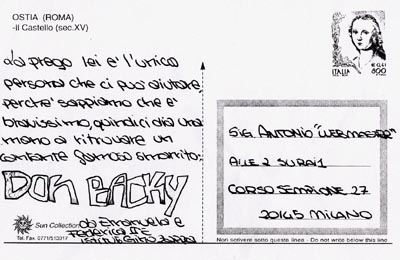 OSTIA (ROMA)
-il Castello (sec.XV)
la prego lei e' l'unica
persona che ci può aiutare,
perche' sappiamo che e'
bravissimo, quindi ci dia una
mano a ritrovare un
cantante famoso smarrito:
DON BACKY
da Emanuela e
Federica
Sun Collection
Tel. Fax. 0771/513017
ITALIA
€ 0,41
800
SIG. ANTONIO "WEBMASTER"
ALLE 2 SU RAI 1
CORSO SEMPIONE 27
20145 MILANO
Non scrivere sotto questa linea - Do not write below this line